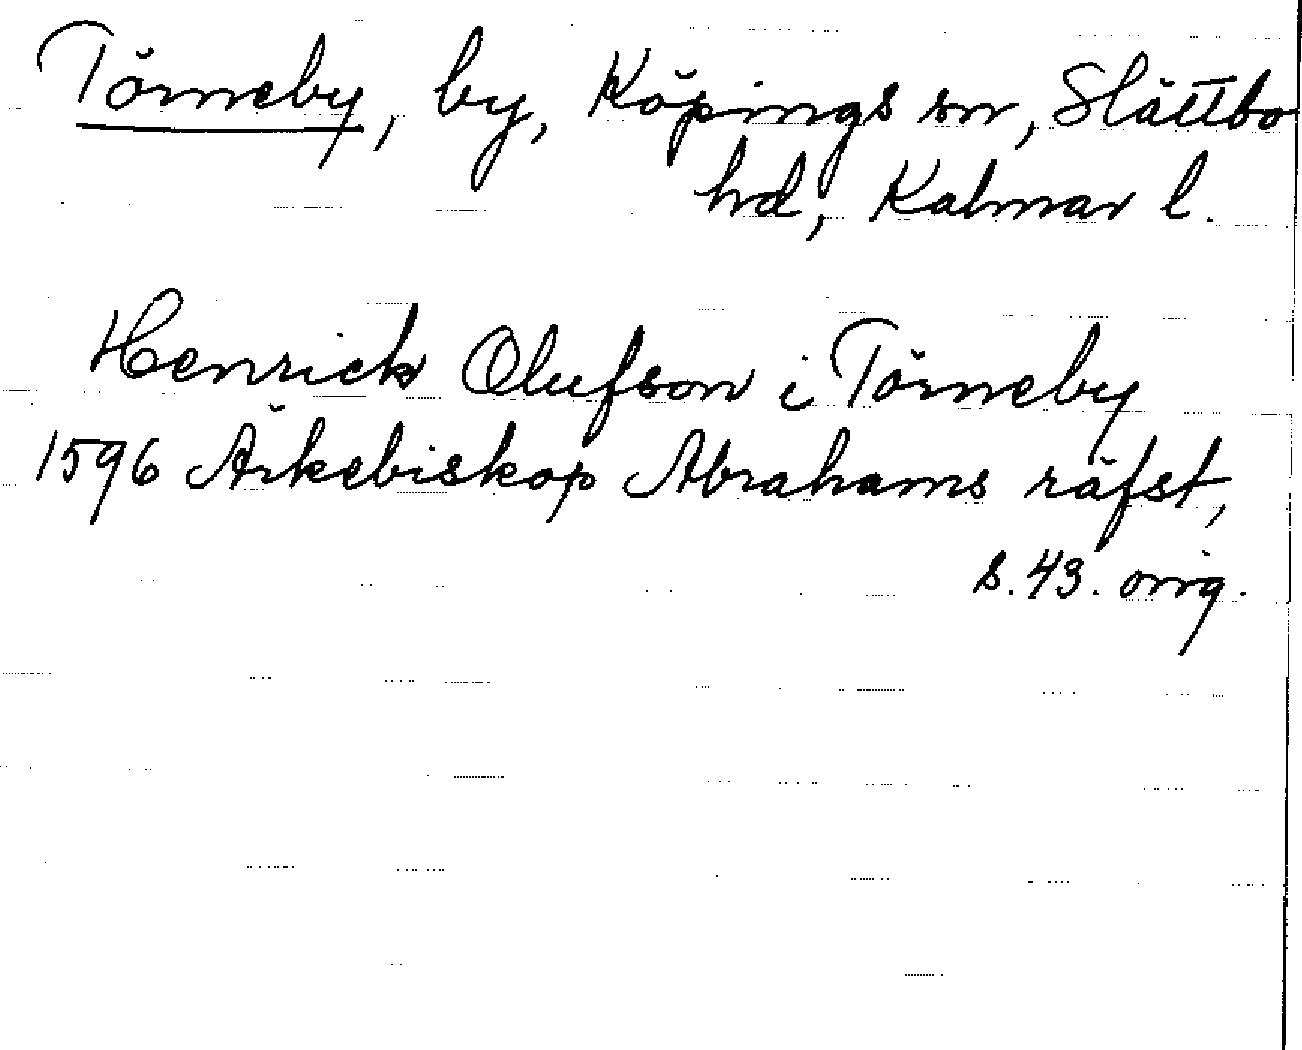 Törneby, by, Köpings sn, Slättbo
hd, Kalmar l.
Henrick Olufson i Törneby
1596 Ärkebiskop Abrahams räfst,
s. 43. orig.